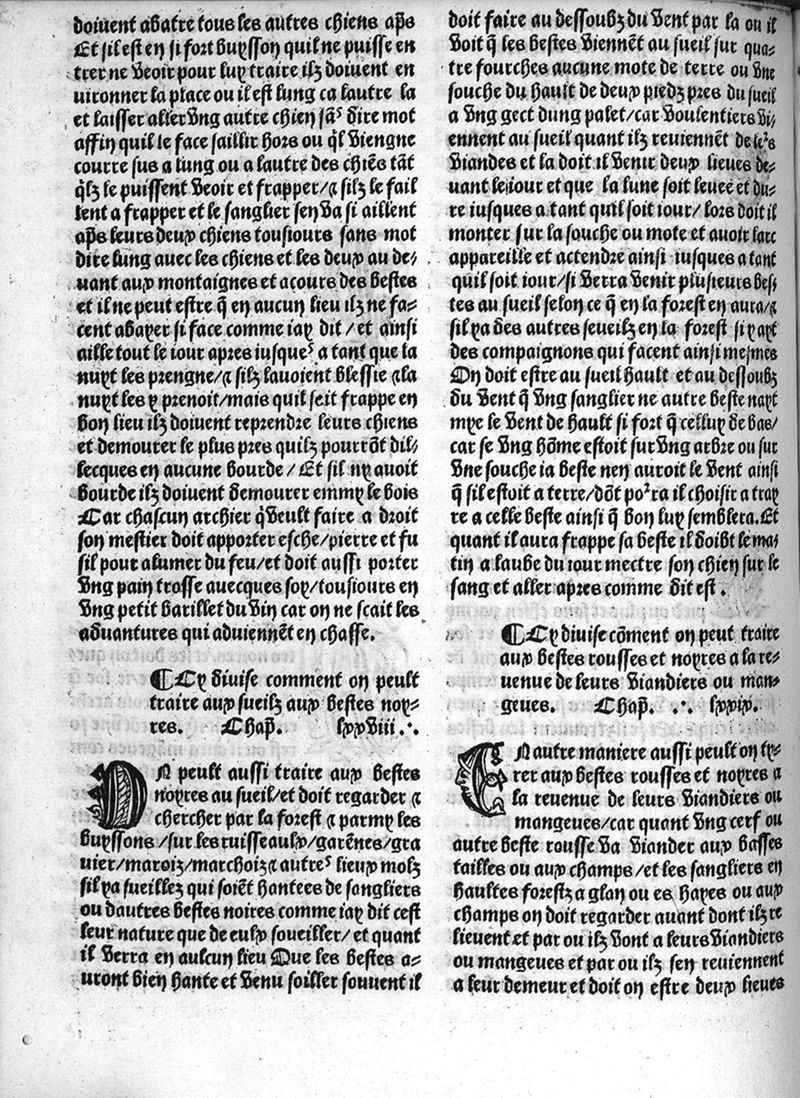 doiuent abatre tous les autres chiens ap̃s
Et sil est en si fort buysson quil ne puisse en
trer ne veoir pour luy traire ilz doiuent en
uironner la place ou il est lung ca lautre la
et laisser aller vng autre chien sãs dire mot
affin quil le face saillir hors ou q̃l viengne
courre sus a lung ou a lautre des chiẽs tãt
q̃lz le puissent veoir et frapper/⁊ silz le fail
lent a frapper et le sanglier sen va si aillent
ap̃s leurs deux chiens tousiours sans mot
dire lung auec les chiens et les deux au de-
uant aux montaignes et acours des bestes
et il ne peut estre q̃ en aucun lieu ilz ne fa-
cent abayer si face comme iay dit/et ainsi
aille tout le iour apres iusqueˢ a tant que la
nuyt les prengne/⁊ silz lauoient blessie ⁊ la
nuyt les y prenoit/mais quil seit frappe en
bon lieu ilz doiuent reprendre leurs chiens
et demourer le plus pres quilz pourrõt dil-
lecques en aucune bourde/Et sil ny auoit
bourde ilz doiuent demourer emmy le bois
Car chascun archier q̃ veult faire a droit
son mestier doit apporter esche/pierre et fu
sil pour alumer du feu/et doit aussi porter
vng pain trosse auecques soy/tousiours en
vng petit barillet du vin car on ne scait les
aduantures qui aduiennẽt en chasse.
¶Cy diuise comment on peult
traire aux sueilz aux bestes noy-
res. Chap̃. lxxviii.
ON peult aussi traire aux bestes
noyres au sueil/et doit regarder ⁊
chercher par la forest ⁊ parmy les
buyssons/sur les ruisseaulx/garẽnes/gra
uier/maroiz/marchoiz ⁊ autreˢ lieux molz
sil ya sueillez qui soiẽt hantees de sangliers
ou dautres bestes noires comme iay dit cest
leur nature que de eulx soueiller/et quant
il verra en aulcun lieu Que les bestes a-
uront bien hante et venu soiller souuent il
doit faire au dessoubz du vent par la ou il
voit q̃ les bestes viennẽt au sueil sur qua-
tre fourches aucune mote de terre ou vne
souche du hault de deux piedz pres du sueil
a vng gect dung palet/car voulentiers vi-
ennent au sueil quant ilz reuiennẽt de leˢs
viandes et la doit il venir deux lieues de-
uant le iour et que la lune soit leuee et du-
re iusques a tant quil soit iour/lors doit il
monter sur la souche ou mote et auoir larc
appareille et actendre ainsi iusques a tant
quil soit iour/si verra venir plusieurs bes-
tes au sueil selon ce q̃ en la forest en aura/⁊
sil ya des autres seueilz en la forest si y ayt
des compaignons qui facent ainsi mesmes
On doit estre au sueil hault et au dessoubz
du vent q̃ vng sanglier ne autre beste nayt
mye le vent de hault si fort q̃ celluy de bas/
car se vng hõme estoit sur vng arbre ou sur
vne souche ia beste nen auroit le vent ainsi
q̃ sil estoit a terre/dõt poʳra il choisir a tray
re a celle beste ainsi q̃ bon luy semblera. Et
quant il aura frappe sa beste il doibt le ma-
tin a laube du iour mectre son chien sur le
sang et aller apres comme dit est.
¶Cy diuise cõment on peut traire
aux bestes rousses et noyres a la re-
uenue de leurs viandiers ou man-
geues. Chap̃. .·. lxxix.
EN autre maniere aussi peult on ty-
rer aux bestes rousses et noyres a
la reuenue de leurs viandiers ou
mangeues/car quant vng cerf ou
autre beste rousse va viander aux basses
tailles ou aux champs/et les sangliers en
haultes forestz a glan ou es hayes ou aux
champs on doit regarder auant dont ilz re
lieuent et par ou ilz vont a leurs viandiers
ou mangeues et par ou ilz sen reuiennent
a leur demeur et doit on estre deux lieues